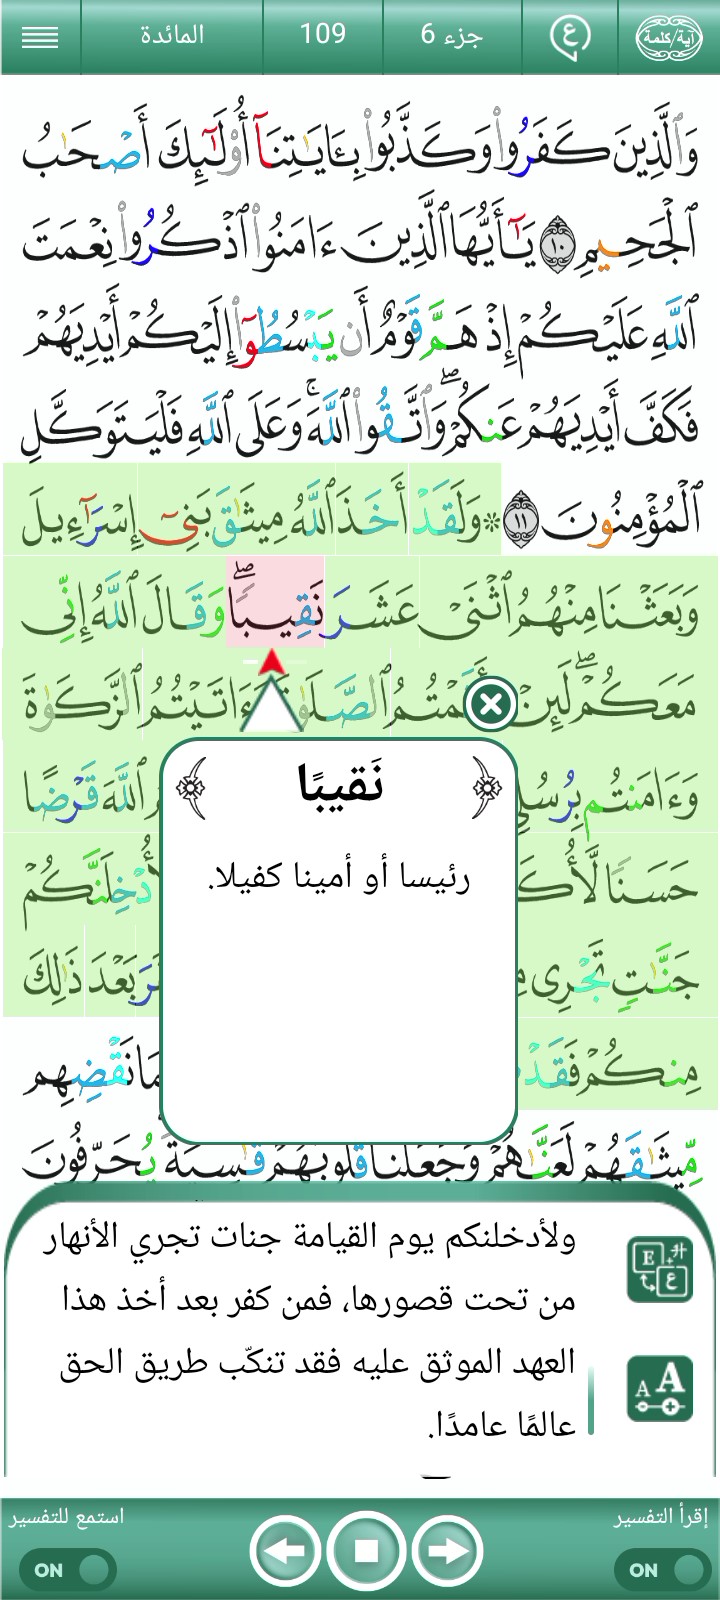 آية/كلمة
ع
جزء 6
109
المائدة
وَٱلَّذِينَ كَفَرُوا۟ وَكَذَّبُوا۟ بِـَٔايَـٰتِنَآ أُو۟لَـٰٓئِكَ أَصْحَـٰبُ
ٱلْجَحِيمِ ١٠ يَـٰٓأَيُّهَا ٱلَّذِينَ ءَامَنُوا۟ ٱذْكُرُوا۟ نِعْمَتَ
ٱللَّهِ عَلَيْكُمْ إِذْ هَمَّ قَوْمٌ أَن يَبْسُطُوٓا۟ إِلَيْكُمْ أَيْدِيَهُمْ
فَكَفَّ أَيْدِيَهُمْ عَنكُمْ ۖ وَٱتَّقُوا۟ ٱللَّهَ ۚ وَعَلَى ٱللَّهِ فَلْيَتَوَكَّلِ
ٱلْمُؤْمِنُونَ ١١ ۞ وَلَقَدْ أَخَذَ ٱللَّهُ مِيثَـٰقَ بَنِىٓ إِسْرَٰٓءِيلَ
وَبَعَثْنَا مِنْهُمُ ٱثْنَىْ عَشَرَ نَقِيبًا ۖ وَقَالَ ٱللَّهُ إِنِّى
مَعَكُمْ ۖ لَئِنْ أَقَمْتُمُ ٱلصَّلَوٰةَ وَءَاتَيْتُمُ ٱلزَّكَوٰةَ
وَءَامَنتُم بِرُسُلِى ٱللَّهَ قَرْضًا
حَسَنًا لَّأُكَ وَلَأُدْخِلَنَّكُمْ
جَنَّـٰتٍ تَجْرِى بَعْدَ ذَٰلِكَ
مِنكُمْ فَقَدْ نَقْضِهِم
مِّيثَـٰقَهُمْ لَعَنَّـٰهُمْ وَجَعَلْنَا قُلُوبَهُمْ قَـٰسِيَةً ۖ يُحَرِّفُونَ
نَقيبًا
رئيسا أو أمينا كفيلا.
ولأدخلنكم يوم القيامة جنات تجري الأنهار
من تحت قصورها، فمن كفر بعد أخذ هذا
العهد الموثق عليه فقد تنكّب طريق الحق
عالمًا عامدًا.
E
ع
A A
إقرأ التفسير
استمع للتفسير
ON
ON